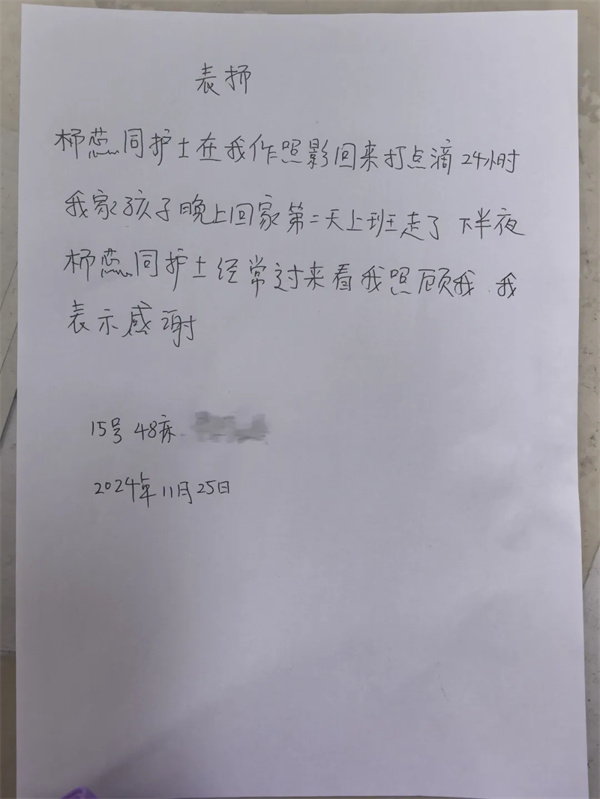 表扬
柳蕊同护士在我作照影回来打点滴24小时
我家孩子晚上回家第二天上班走了 下半夜
柳蕊同护士经常过来看我照顾我 我
表示感谢
15号 48床
2024年11月25日